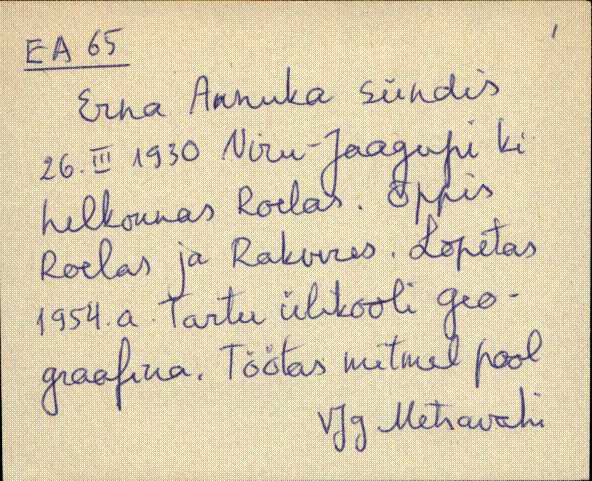 EA 65
1
Erna Annuka sündis
26. III 1930 Viru-Jaagupi ki
helkonnas Roelas. Õppis
Roelas ja Rakveres. Lõpetas
1954. a. Tartu ülikooli geo-
graafina. Töötas mitmel pool
VJg Metsavahi